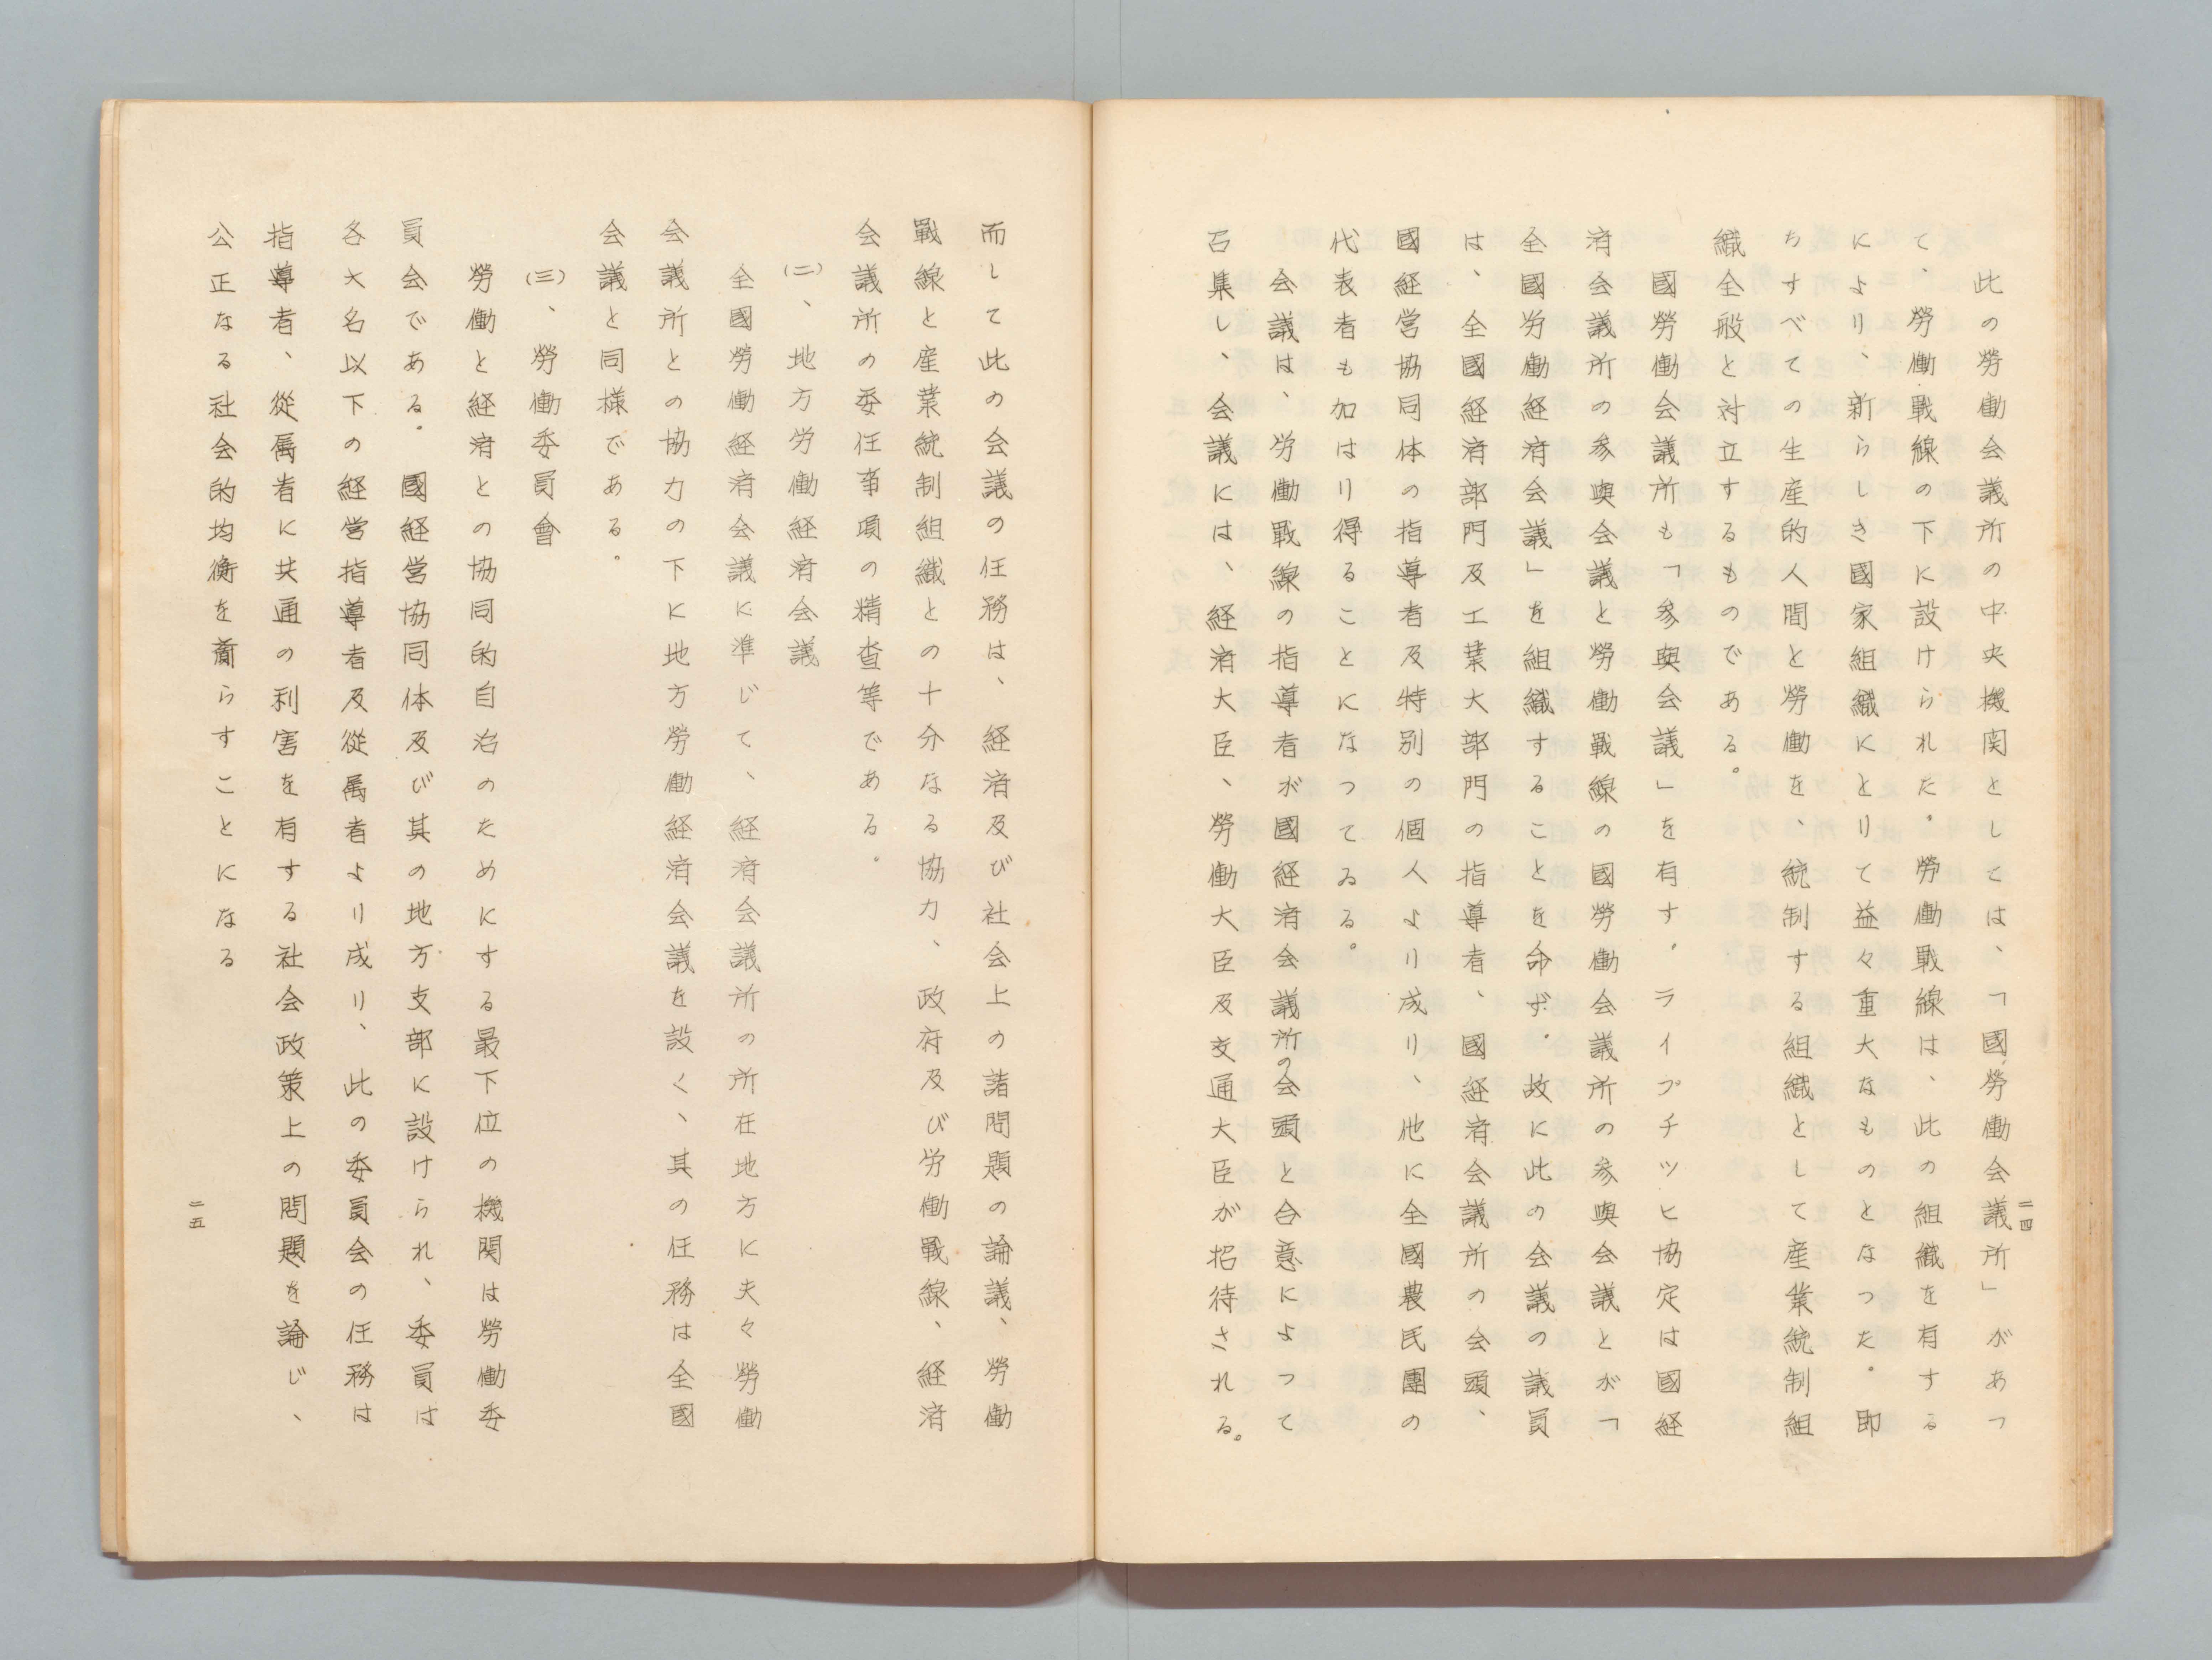 此の勞働会議所の中央機関としては、「國勞働会議所」があつ
て、勞働戰線の下に設けられた。勞働戰線は、此の組織を有する
により、新らしき國家組織にとりて益々重大なものとなつた。即
ちすべての生産的人間と勞働を、統制する組織として産業統制組
織全般と対立するものである。
國勞働会議所も「参與会議」を有す。ライプチツヒ協定は國経
済会議所の参與会議と勞働戰線の國勞働会議所の参與会議とが「
全國労働経済会議」を組織することを命ず。故に此の会議の議員
は、全國経済部門及工業大部門の指導者、國経済会議所の会頭、
國経営協同体の指導者及特別の個人より成り、他に全國農民團の
代表者も加はり得ることになつてゐる。
会議は、労働戰線の指導者が國経済会議所の会頭と合意によつて
召集し、会議には、経済大臣、勞働大臣及交通大臣が招待される。
二四
而して此の会議の任務は、経済及び社会上の諸問題の論議、勞働
戰線と産業統制組織との十分なる協力、政府及び労働戰線、経済
会議所の委任事項の精査等である。
(二)、地方労働経済会議
全國勞働経済会議に準じて、経済会議所の所在地方に夫々勞働
会議所との協力の下に地方勞働経済会議を設く、其の任務は全國
会議と同様である。
(三)、勞働委員會
勞働と経済との協同的自治のためにする最下位の機関は勞働委
員会である。國経営協同体及び其の地方支部に設けられ、委員は
各大名以下の経営指導者及從属者より成り、此の委員会の任務は
指導者、從属者に共通の利害を有する社会政策上の問題を論じ、
公正なる社会的均衡を齎らすことになる
二五